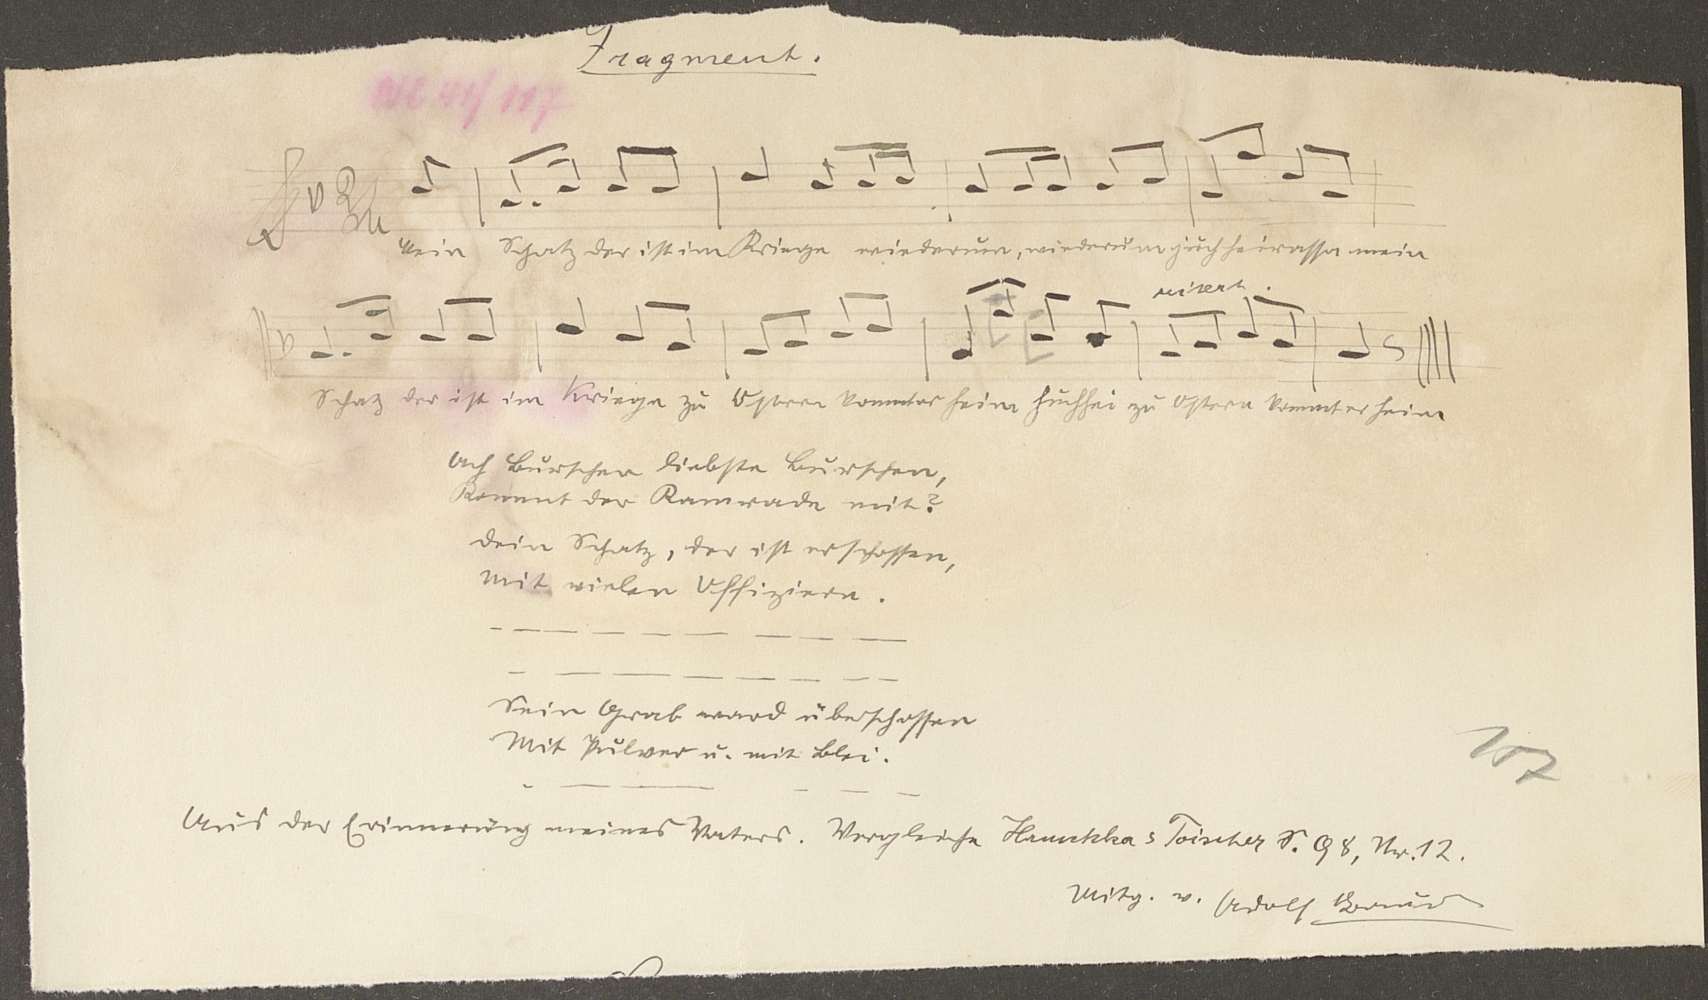 Fragment.
Mein Schatz der ist im Kriege wiederum, wiederum juchheirassa mein
ritart.
Schatz der ist im Kriege zu Ostern kommter heim juchhei zu Ostern kommt er heim
Ach Burschen liebste Burschen,
Kommt der Kamrade mit?
Dein Schatz, der ist erschossen,
Mit vielen Offiziern.
Sein Grab ward überschossen
Mit Pulver u. mit Blei.
107
Aus der Erinnerung meines Vaters. Vergleiche Hruschka & Toischer S. 98, Nr. 12.
Mitg. v. Adolf